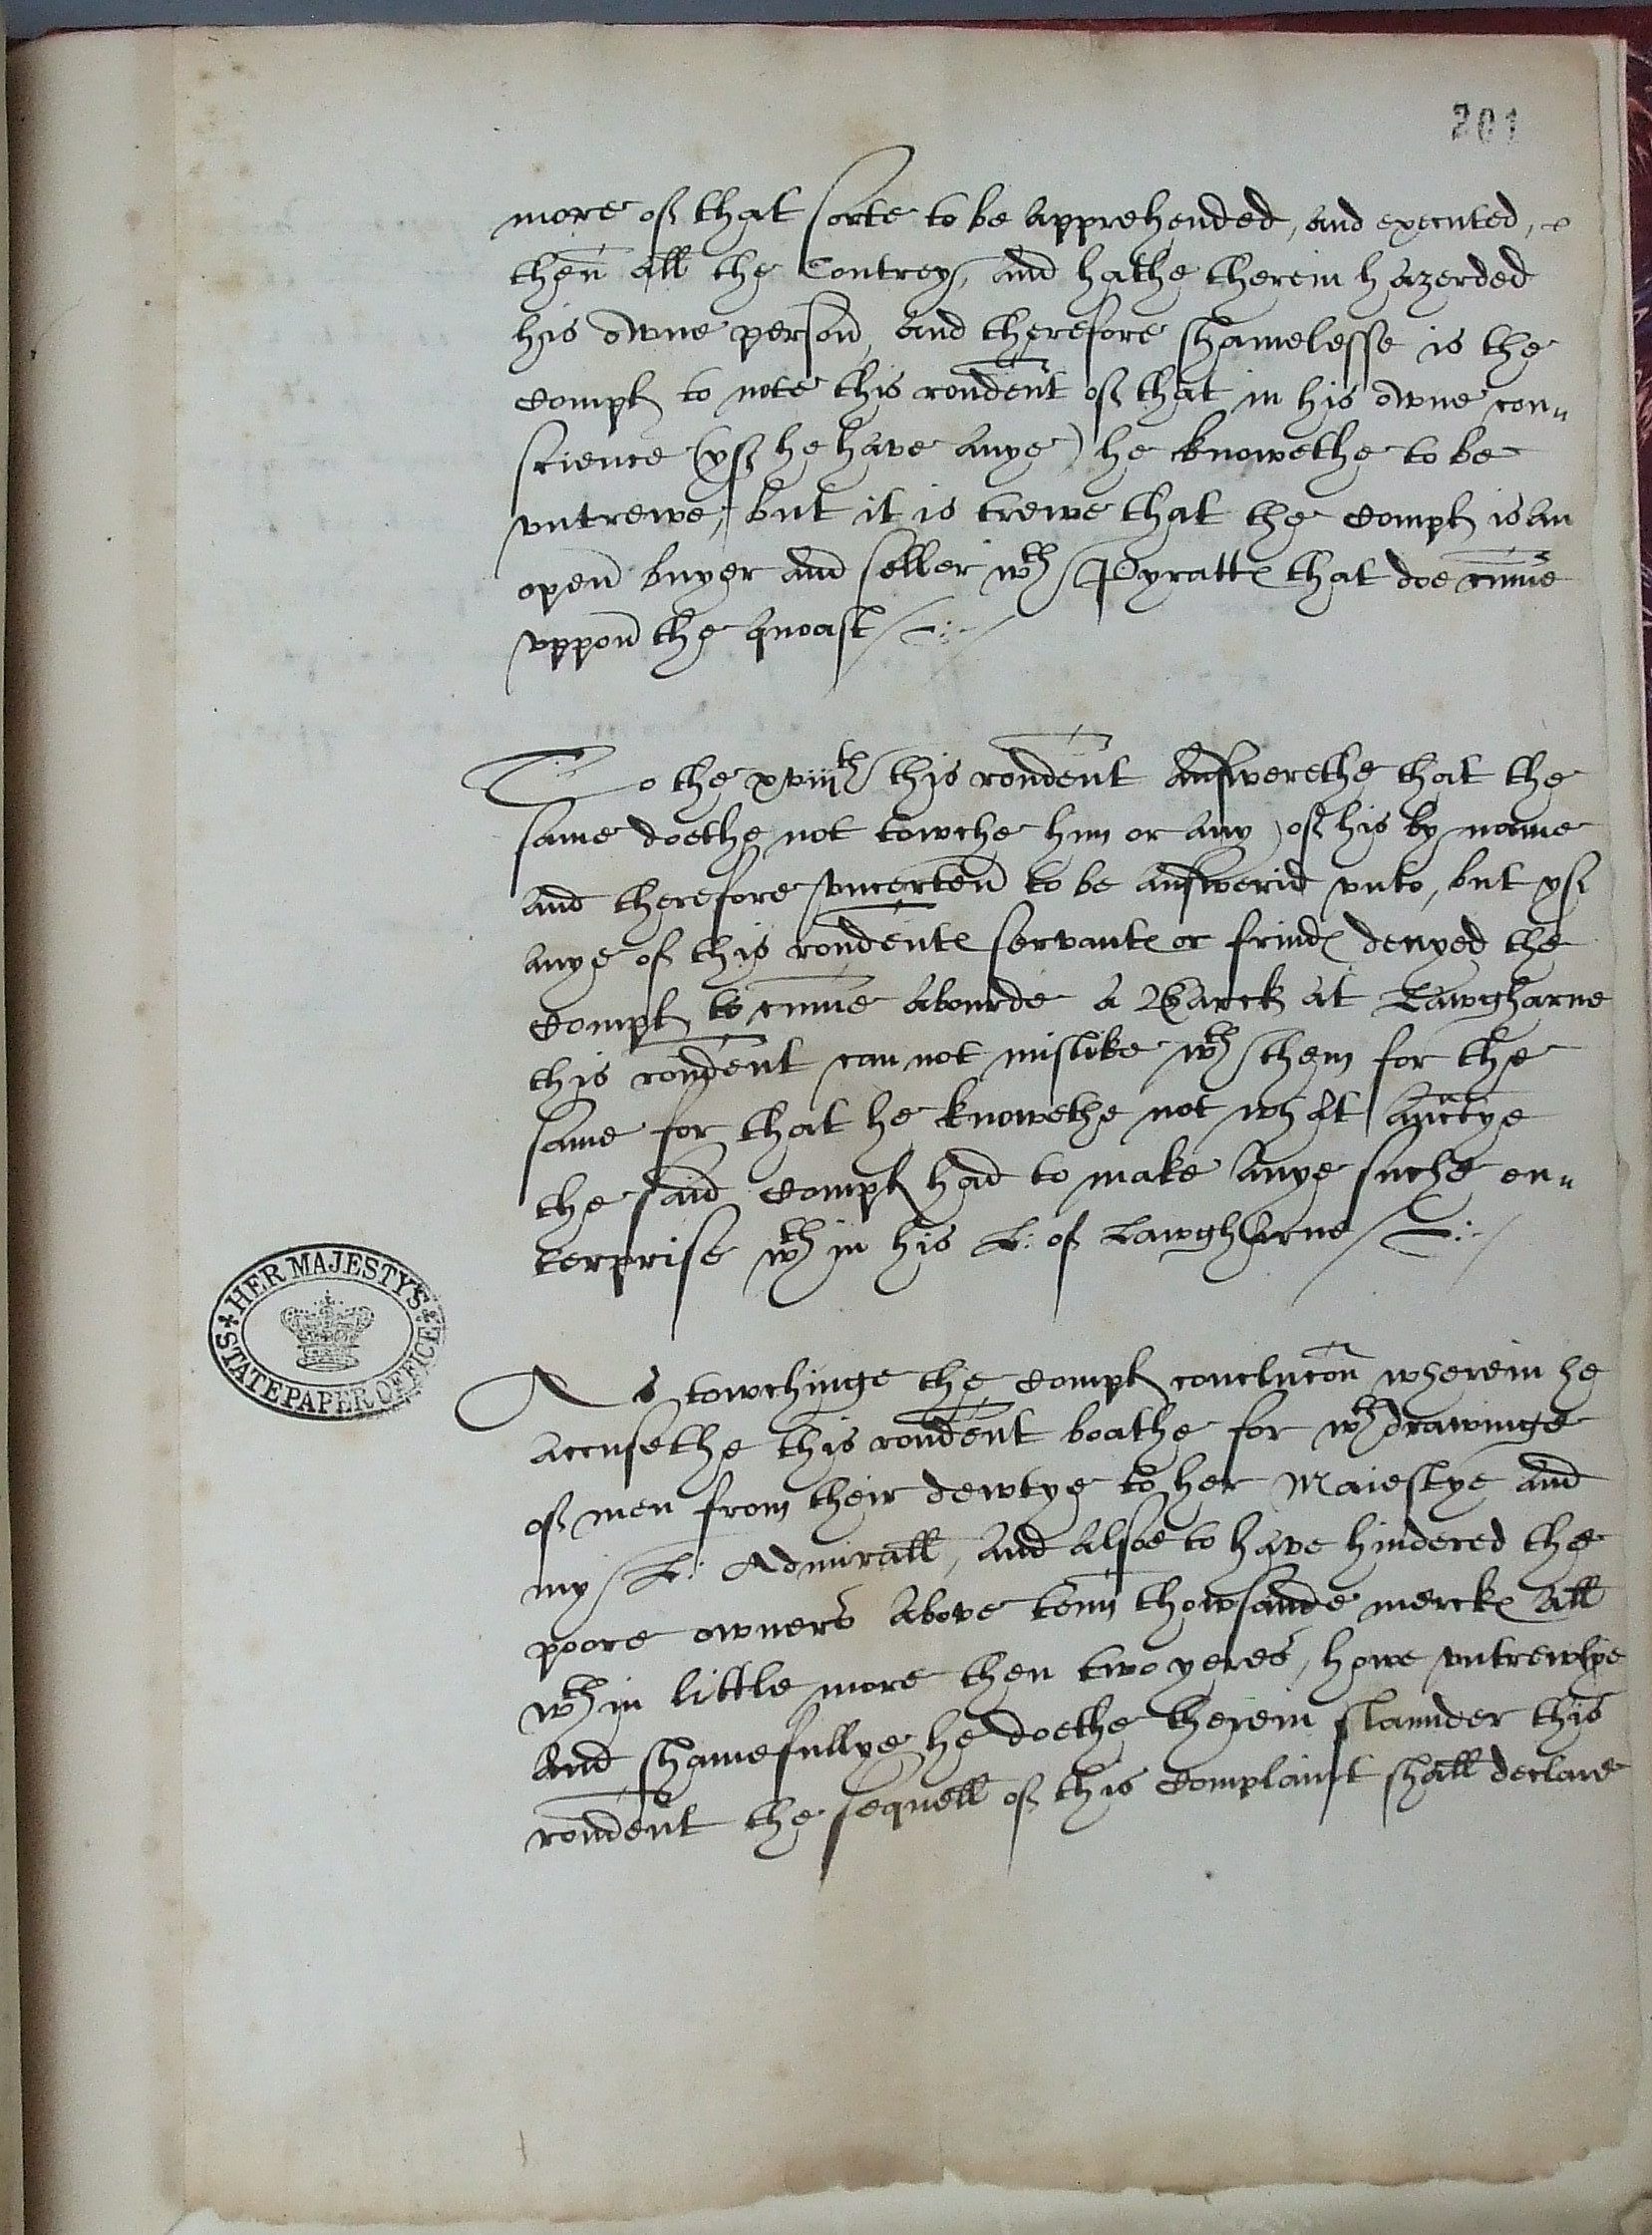 201
more of that sorte to be apprehended, and executed,
then all the Contrey, and hathe therein hazerded
his owne person, and therefore shamelesse is the
Compl to note this rondent of that in his owne con„
science (yf he have anye) he knowethe to be
vntrewe, but it is trewe that the Compl is an
open buyer and seller wth Pyratte that doe cume
vppon the quoast
To the xviijth this rondent answerethe that the
same doethe not towche him or any of his by name
and therefore vncerten to be answerid vnto, but yf
anye of this rondente servante or frinde denyed the
Compl to cume abourde a Barck at Lawgharne
this rondent can not mislike wth them for the
same for that he knowethe not what auctye
the said Compl had to make anye suche en„
terprise wth in his L: of Lawgharne
As towchinge the Compl conclucon wherein he
accusethe this rondent boathe for wth drawinge
of men from their dewtye to her Maiestye and
my L: Admirall, and alsoe to have hindered the
poore owners above tenn thowsande mercke all
wth in little more then two yeres, howe vntrewlye
and shamefullye he doethe therein slaunder this
rondent the sequell of this Complaint shall declare
HER MAJESTY'S
STATE PAPER OFFICE